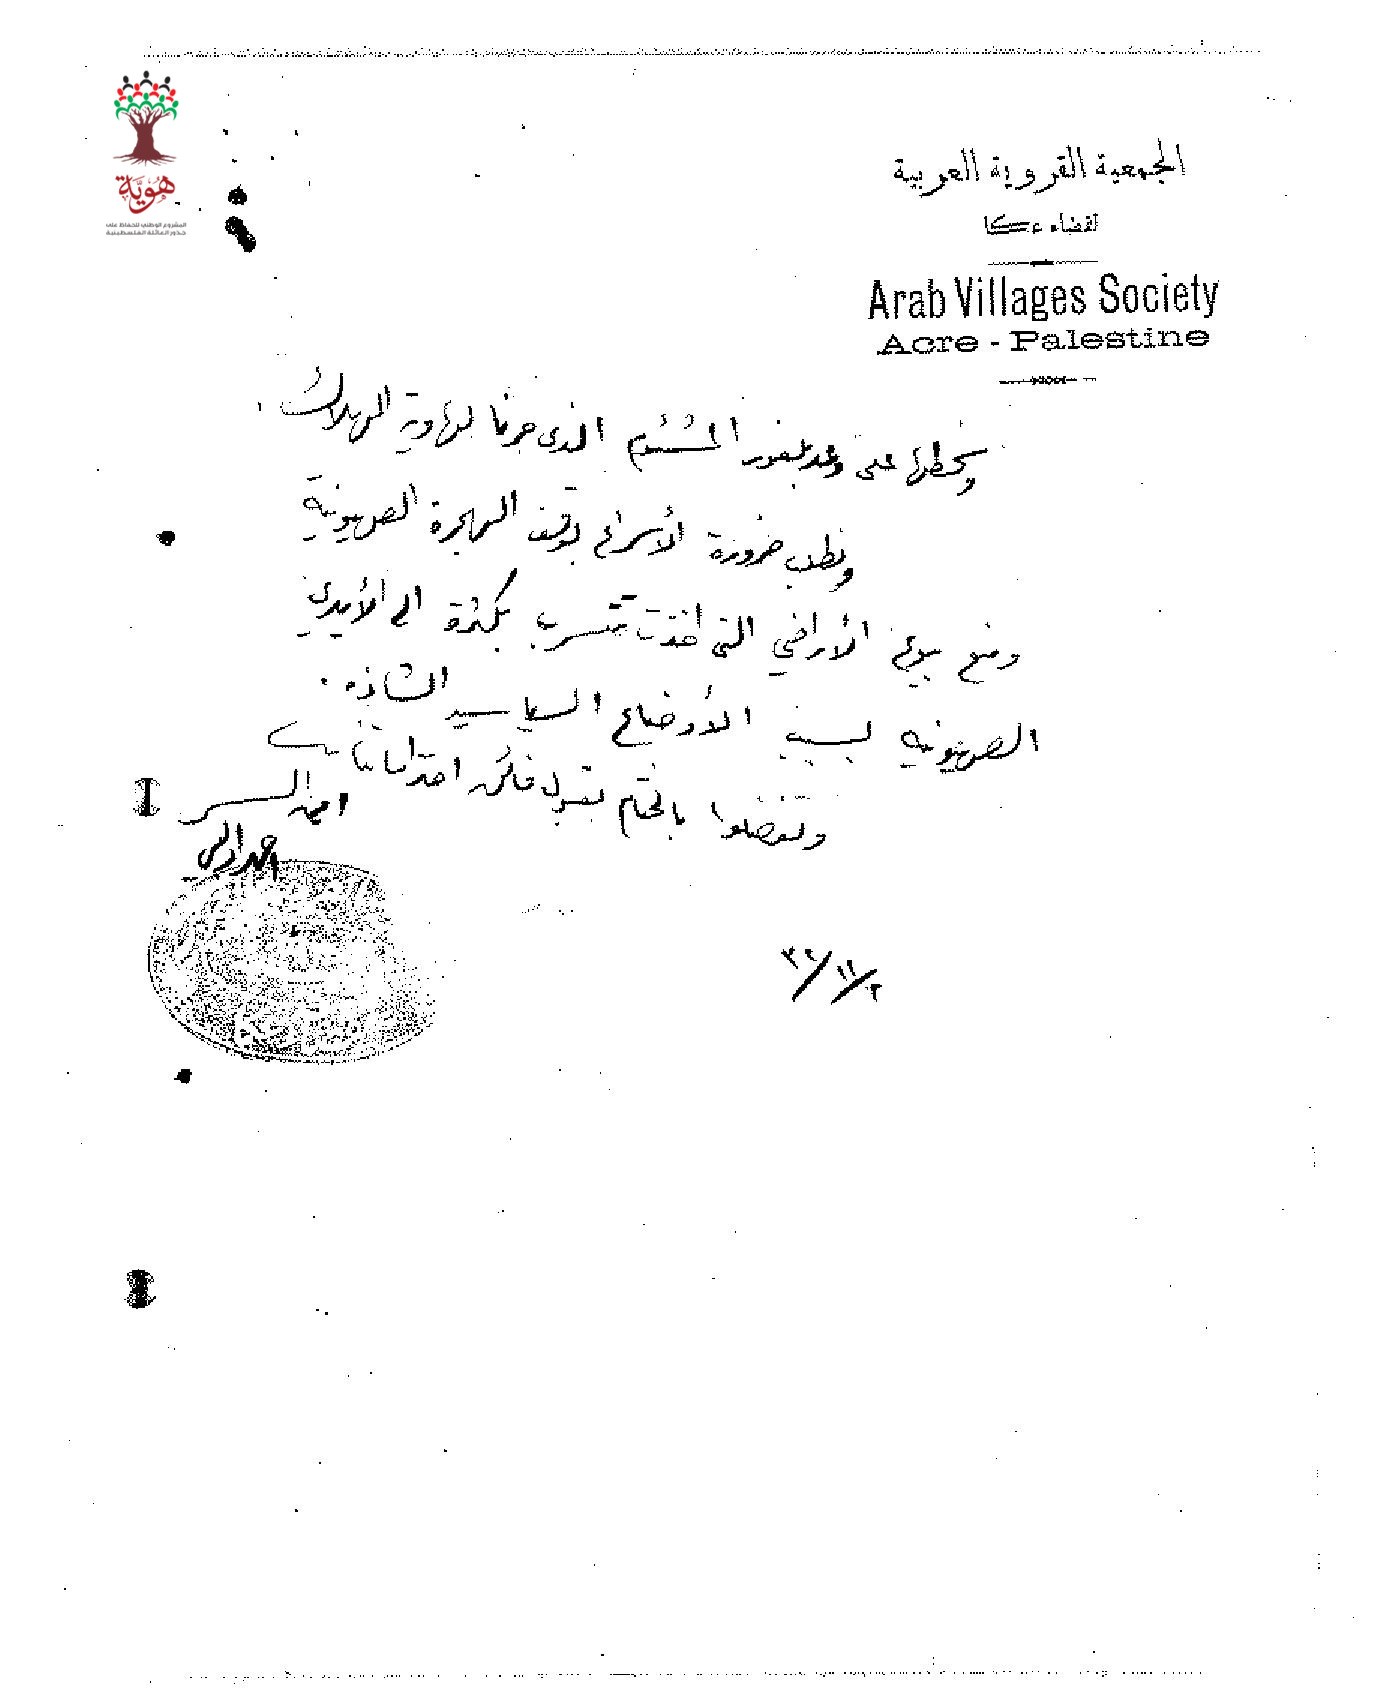 هوية
المشروع الوطني للحفاظ على
جذور العائلة الفلسطينية
الجمعية القروية العربية
لقضاء عكا
Arab Villages Society
Acre - Palestine
وسخطها على وعد بلفور المشئوم الذي جرنا لهاوية الهلاك.
ونطلب ضرورة الأسراع بوقف الهجرة الصهيونية
ومنع بيوع الأراضي التي اخذت تتسرب بكثرة الى الأيدي
الصهيونية بسبب الأوضاع السياسيه الشاذه.
وتفضلوا بالختام بقبول فائق احتراماتنا
امين السر
٢/١١/٣٢